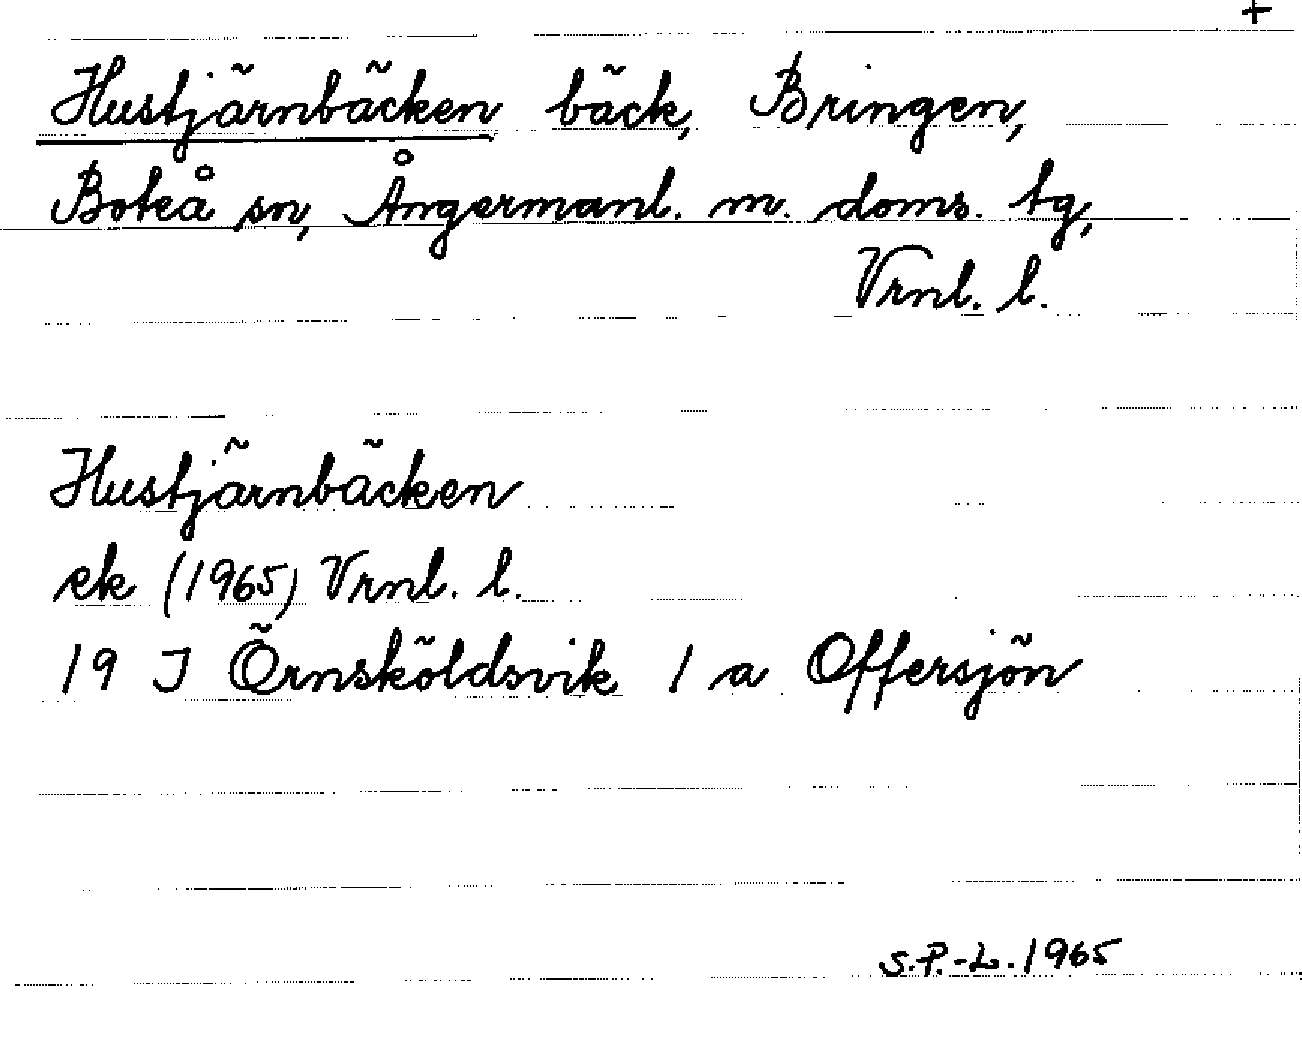 +
Hustjärnbäcken bäck, Bringen,
Boteå sn, Ångermanl. m. doms. tg,
Vrnl. l.
Hustjärnbäcken
ek (1965) Vrnl. l.
19 J Örnsköldsvik 1 a Offersjön
S.P.-L. 1965